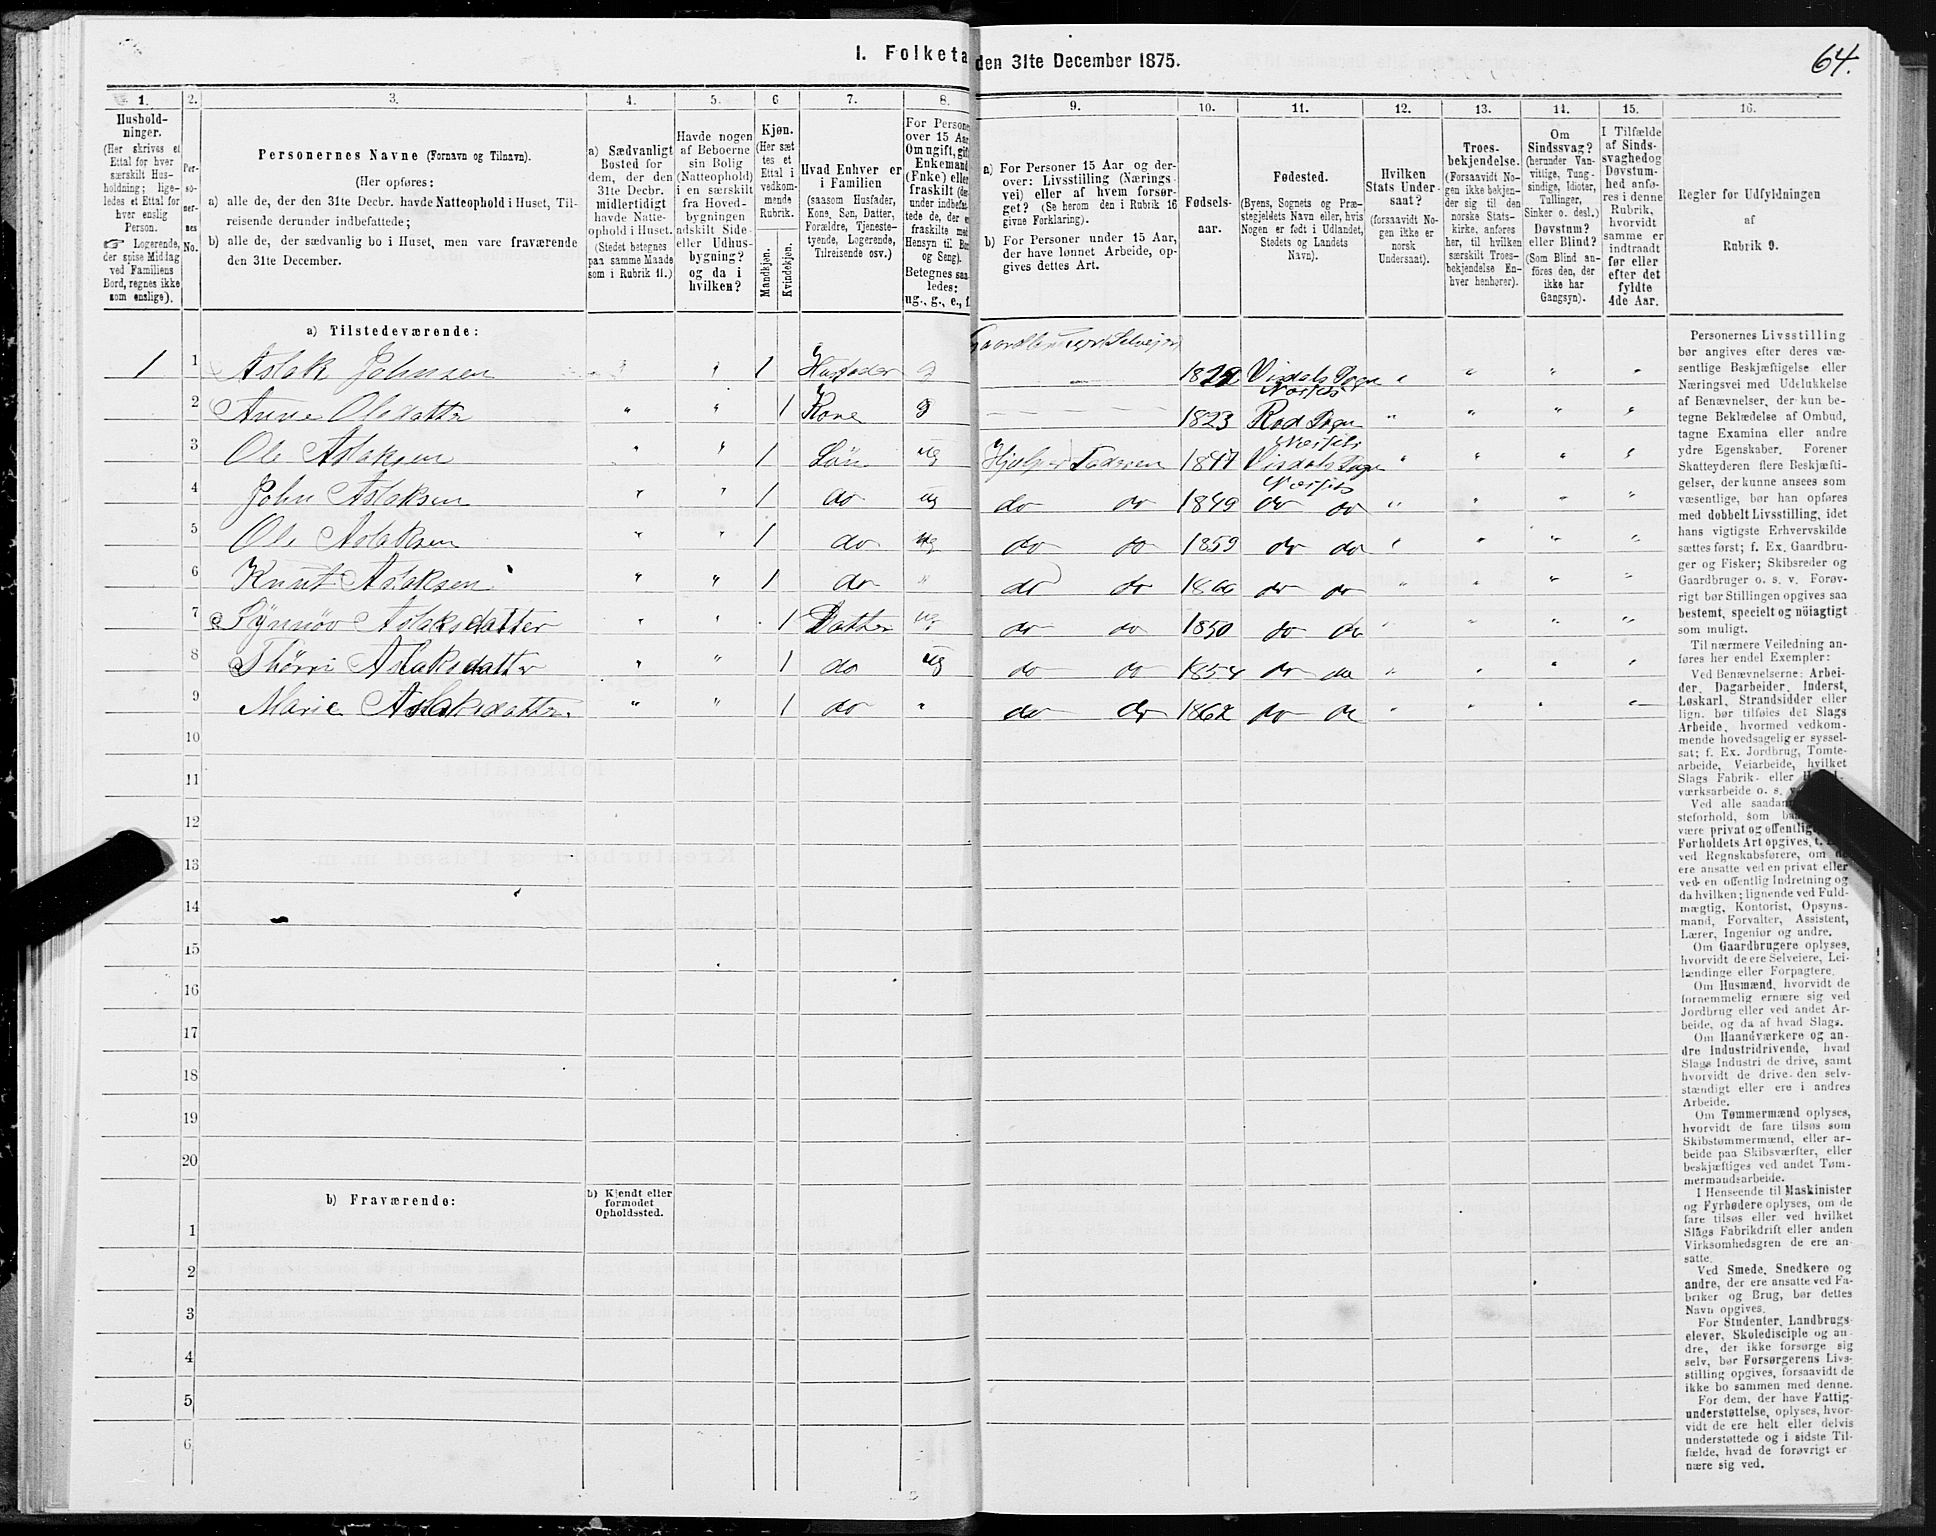 I. Folketa den 31te December 1875.
64.
1.
Hushold-
ninger.
(Her skrives et
Ettal for hver
særskilt Hus-
holdning; lige-
ledes et Ettal for
hver enslig
Person.
☞ Logerende,
der spise Middag
ved Familiens
Bord, regnes ikke
som enslige).
2.
Per-
so-
ner-
nes
No.
3.
Personernes Navne (Fornavn og Tilnavn).
(Her opføres:
a) alle de, der den 31te Decbr. havde Natteophold i Huset, Til-
reisende derunder indbefattede;
b) alle de, der sædvanlig bo i Huset, men vare fraværende
den 31te December.
4.
a) Sædvanligt
Bosted for
dem, der den
31te Decbr.
midlertidigt
havde Natte-
ophold i Huset.
(Stedet betegnes
paa samme Maade
som i Rubrik 11.)
5.
Havde nogen
af Beboerne
sin Bolig
(Natteophold)
i en særskilt
fra Hoved-
bygningen
adskilt Side-
eller Udhus-
bygning?
og da i
hvilken?
6
Kjøn.
(Her sæt
tes et
Ettal i
vedkom-
mende
Rubrik.
Mandkjøn.
Kvindekjøn.
7.
Hvad Enhver er
i Familien
(saasom Husfader,
Kone, Søn, Datter,
Forældre, Tjeneste-
tyende, Logerende,
Tilreisende osv.)
8.
For Persone
over 15 Aar
Om ugift, gif
Enkemand
(Enke) eller
fraskilt
Hensyn til Bor
og Seng).
Betegnes saa
ledes:
ug., g., e., f.
9.
a) For Personer 15 Aar og der-
over: Livsstilling (Nærings-
vei) eller af hvem forsør-
get? (Se herom den i Rubrik 16
givne Forklaring).
b) For Personer under 15 Aar,
der have lønnet Arbeide, op-
gives dettes Art.
10.
Fødsels-
aar.
11.
Fødested.
(Byens, Sognets og Præ-
stegjeldets Navn eller, hvis
Nogen er født i Udlandet,
Stedets og Landets
Navn).
12.
Hvilken
Stats Under-
saat?
(forsaavidt No-
gen ikke er
norsk
Undersaat).
13.
Troes-
bekjendelse.
(Forsaavidt No-
gen ikke bekjen-
der sig til den
norske Stats-
kirke, anføres
her, til hvilken
særskilt Troes-
bekjendelse En-
hver henhører).
14.
Om
Sindssvag?
(herunder Van-
vittige, Tung-
sindige, Idioter,
Tullinger,
Sinker o. desl.)
Døvstum?
eller Blind?
(Som Blind an-
føres den, der
ikke har
Gangsyn).
15.
I Tilfælde
af Sinds-
svaghed og
Døvstum-
hed anfø-
res i denne
Rubrik,
hvorvidt
samme er
indtraadt
før eller
efter det
fyldte
4de Aar.
16.
Regler for Udfyldningen
af
Rubrik 9.
a) Tilstedeværende:
1 1 Aslak Johnsen " " 1 Husfader g Selvejer Visdals Sogn " " " "
Næsset
2 Anne Olsdatter " " 1 Kone g 1823 Rød Sogn " " " "
Næsset
3 Ole Aslaksen " " 1 Søn ug Hjelper Faderen Visdals Sogn " " " "
Næsset
4 John Aslaksen " " 1 do ug do do 1849 do do " " " "
5 Ole Aslaksen " " 1 do ug do do 1859 do do " " " "
6 Knut Aslaksen " " 1 do " do do do do " " " "
7 Synnøv Aslaksdatter " " 1 Datter ug do do 1850 do do " " " "
8 Aslaksdatter " " 1 do ug do do 1854 do do " " " "
9 Marie Aslaksdatter " " 1 do " do do 1862 do do " " " "
10
11
12
13
14
15
16
17
18
19
20
b) Fraværende:
b) Kjendt eller
formodet
Opholdssted.
1
2
3
4
5
6
Personernes Livsstilling
bør angives efter deres væ-
sentlige Beskjæftigelse eller
Næringsvei med Udelukkelse
af Benævnelser, der kun be-
tegne Beklædelse af Ombud,
tagne Examina eller andre
ydre Egenskaber. Forener
Skatteyderen flere Beskjæfti-
gelser, der kunne ansees som
væsentlige, bør han opføres
med dobbelt Livsstilling, idet
hans vigtigste Erhvervskilde
sættes først; f. Ex. Gaardbru-
ger og Fisker; Skibsreder og
Gaardbruger o. s. v. Forøv-
rigt bør Stillingen opgives saa
bestemt, specielt og nöiagtigt
som muligt.
Til nærmere Veiledning an-
føres her endel Exempler:
Ved Benævnelserne: Arbei-
der, Dagarbeider, Inderst,
Løskarl, Strandsidder eller
lign. bør tilføies det Slags
Arbeide, hvormed vedkom-
mende hovedsagelig er syssel-
sat; f. Ex. Jordbrug, Tomte-
arbeide, Veiarbeide, hvilket
Slags Fabrik- eller
værksarbeide o. s.
Ved alle saadan
steforhold, som
være privat og offentlig
Forholdets Art opgives,
ved Regnskabsførere, om de
ere ansatte ved en privat eller
ved en offentlig Indretning og
da hvilken; lignende ved Fuld-
mægtig, Kontorist, Opsyns-
mand, Forvalter, Assistent,
Lærer, Ingeniør og andre.
Om Gaardbrugere oplyses,
hvorvidt de ere Selveiere, Lei-
lændinge eller Forpagtere.
Om Husmænd, hvorvidt de
fornemmelig ernære sig ved
Jordbrug eller ved andet Ar-
beide, og da af hvad Slags.
Om Haandværkere og an-
dre Industridrivende, hvad
Slags Industri de drive, samt
hvorvidt de drive den selv-
stændigt eller ere i andres
Arbeide.
Om Tømmermænd oplyses,
hvorvidt de fare tilsøs som
Skibstømmermænd, eller ar-
beide paa Skibsværfter, eller
beskjæftiges ved andet Tøm-
mermandsarbeide.
I Henseende til Maskinister
og Fyrbødere oplyses, om de
fare tilsøs eller ved hvilket
Slags Fabrikdrift eller anden
Virksomhedsgren de ere an-
satte.
Ved Smede, Snedkere og
andre, der ere ansatte ved Fa-
briker og Brug, bør dettes
Navn opgives.
For Studenter, Landbrugs-
elever, Skoledisciple og an-
dre, der ikke forsørge sig
selv, bør Forsørgerens Livs-
stilling opgives, forsaavidt de
ikke bo sammen med denne.
For dem, der have Fattig-
understøttelse, oplyses, hvor-
vidt de ere helt eller delvis
understøttede og i sidste Til-
fælde, hvad de forøvrigt er
nære sig ved.